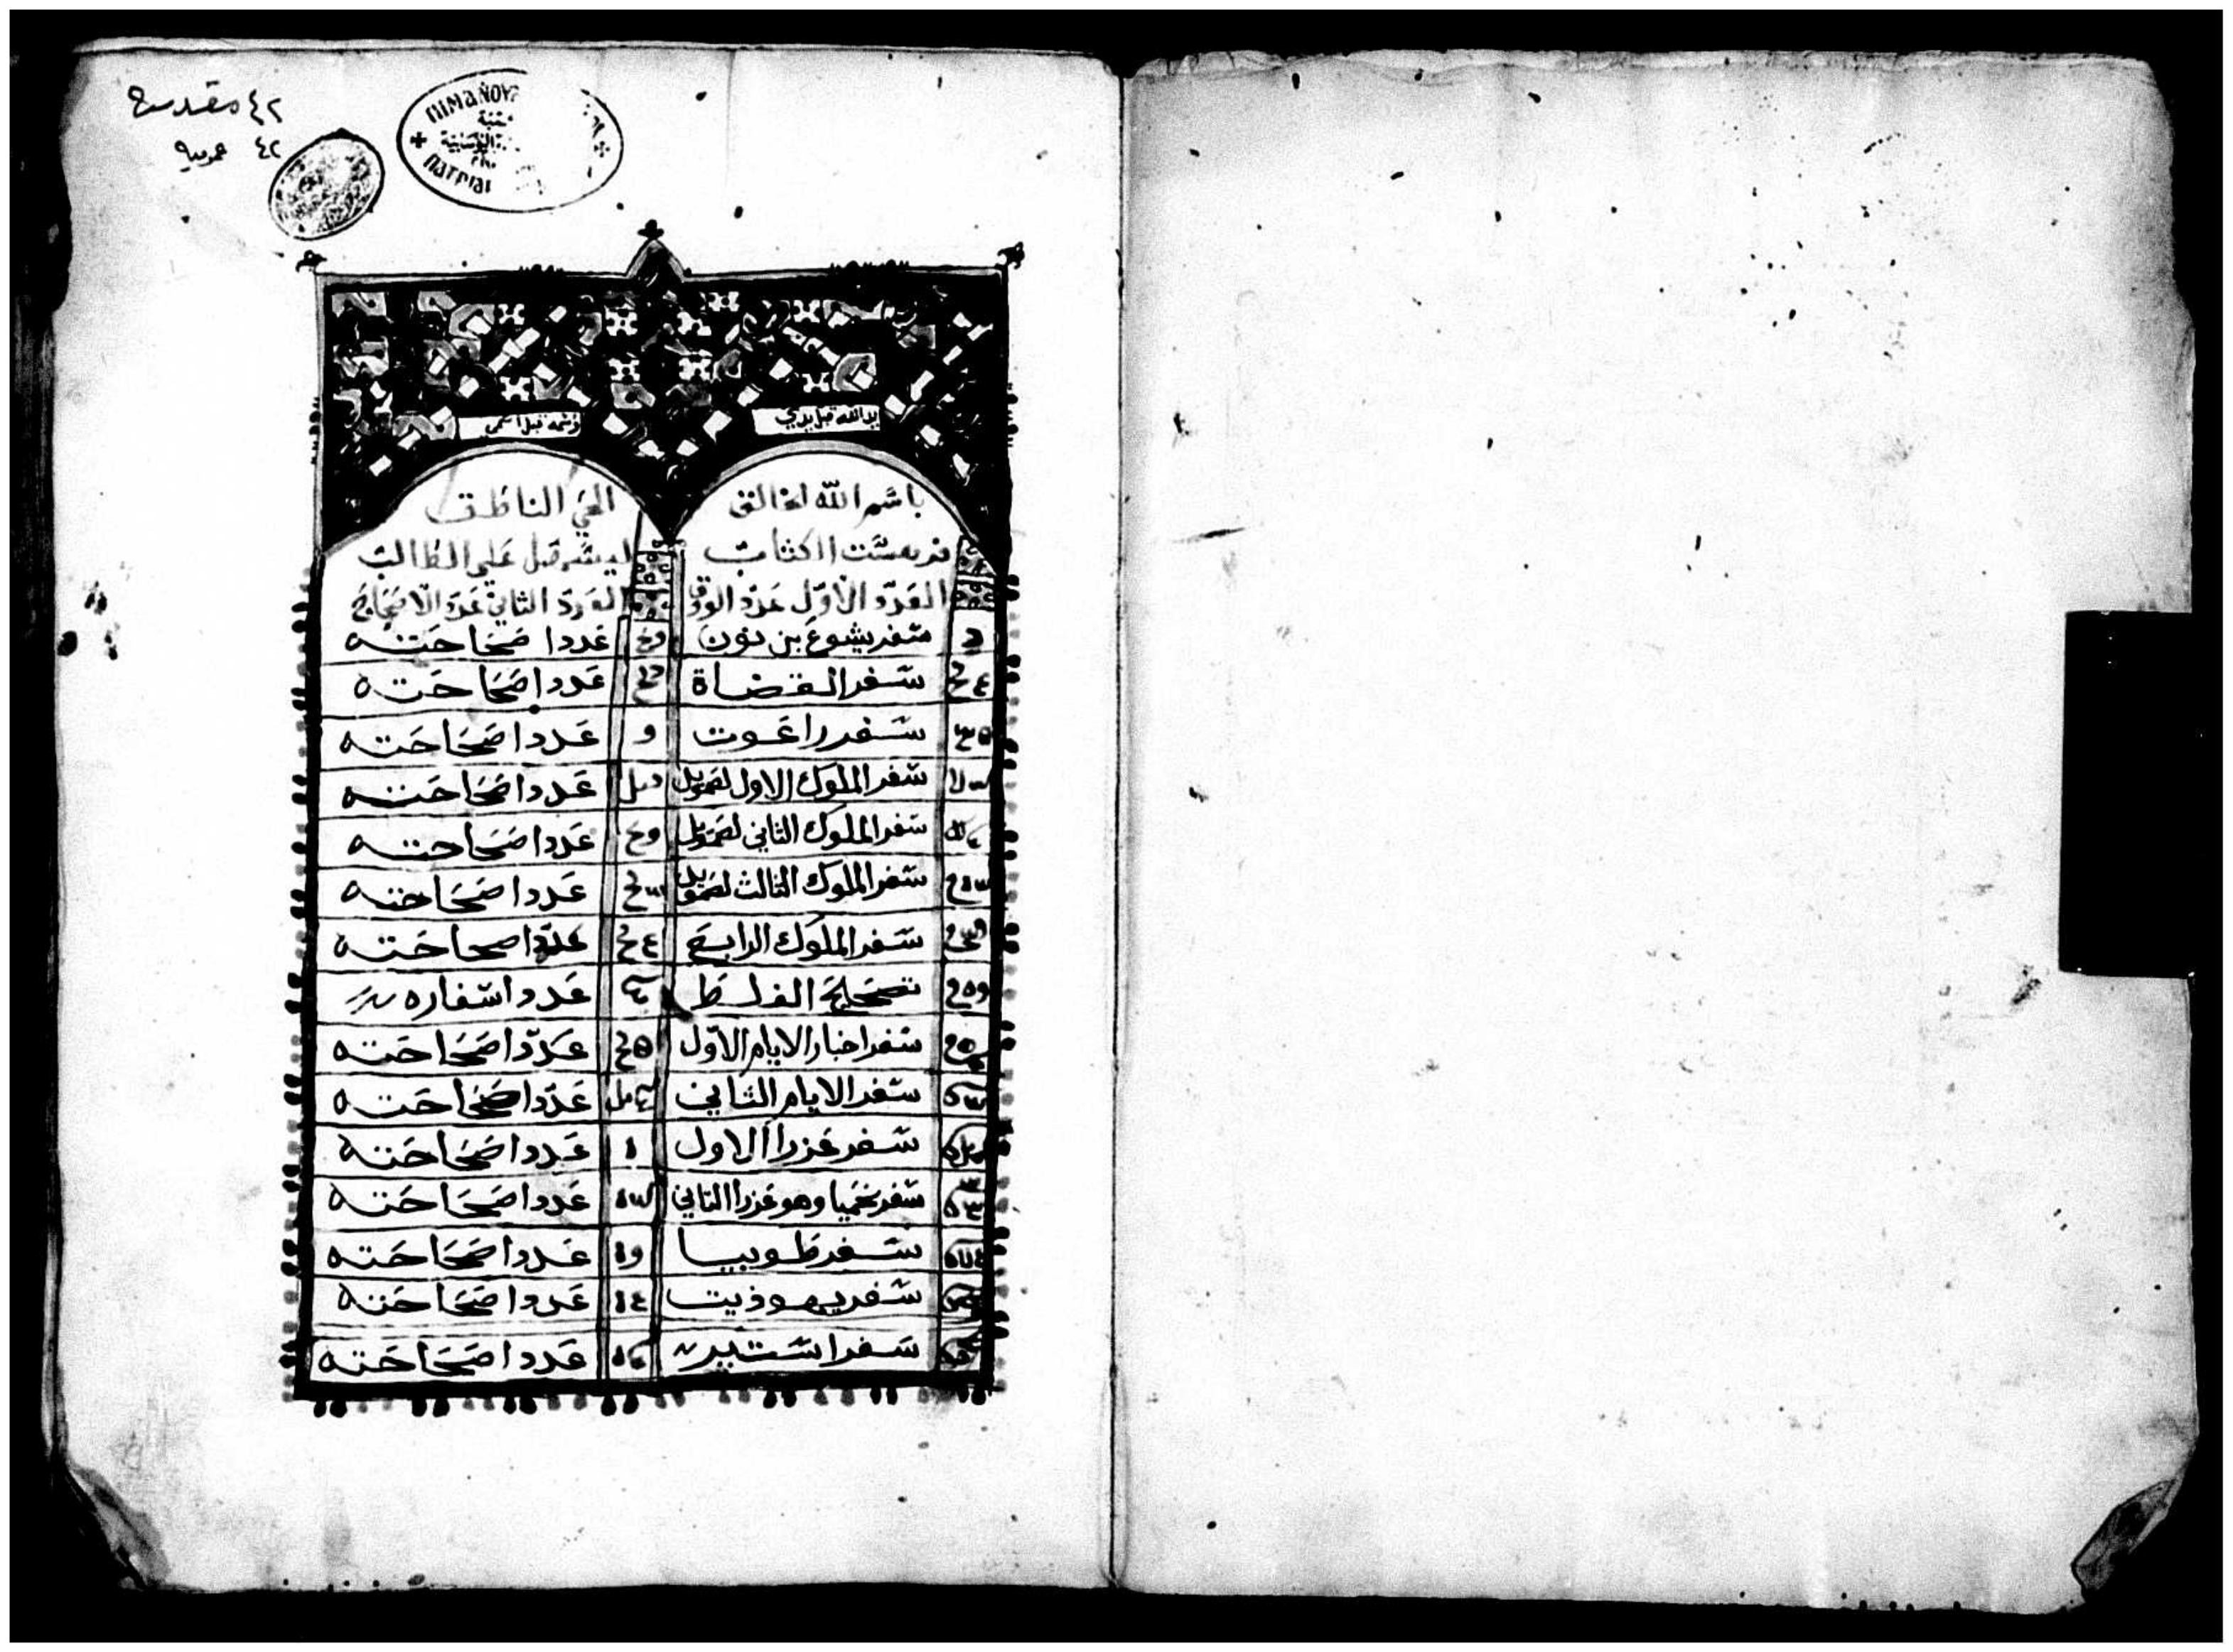 ٤٢ مقدسة
٤٢ عربية
ΠΙΜΑΝΟΥ
ΠΑΤΡΙΑΙ
يد الله قبل يدي
وسمه قبل اسمي
باسم الله الخالق الحي الناطق
فهرست الكتاب ليسهل علي الطالب
العدد الاول عدد الورق العدد الثاني عدد الاصحاح
سفر يشوع بن نون عدد اصحاحته
سفر القضاة عدد اصحاحته
سفر راعوت عدد اصحاحته
سفر الملوك الاول لصمويل عدد اصحاحته
سفر الملوك الثاني لصمويل عدد اصحاحته
سفر الملوك الثالث لصمويل عدد اصحاحته
سفر الملوك الرابع عدد اصحاحته
تصحيح الغلط عدد اسفاره
سفر اخبار الايام الاول عدد اصحاحته
سفر الايام الثاني عدد اصحاحته
سفر عزرا الاول عدد اصحاحته
سفر نحميا وهو عزرا الثاني عدد اصحاحته
سفر طوبيا عدد اصحاحته
سفر يهوذيت عدد اصحاحته
سفر استير عدد اصحاحته